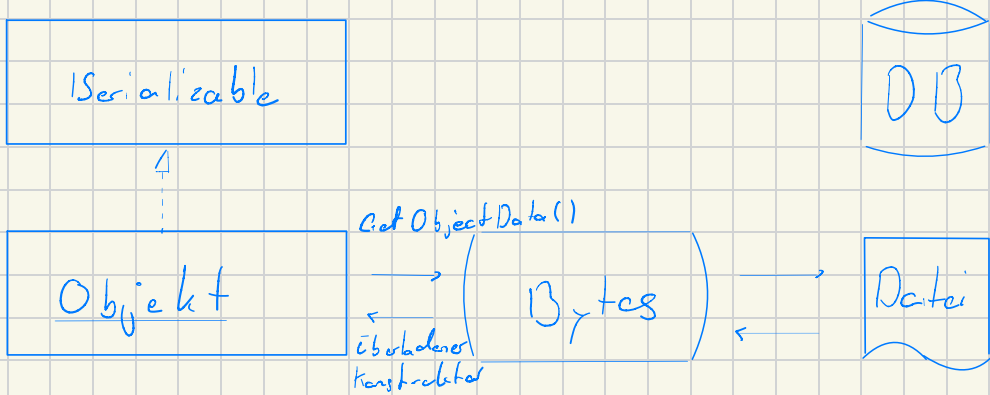 ISerializable
DB
GetObjectData()
Objekt
Bytes
Datei
überladener
Konstruktor